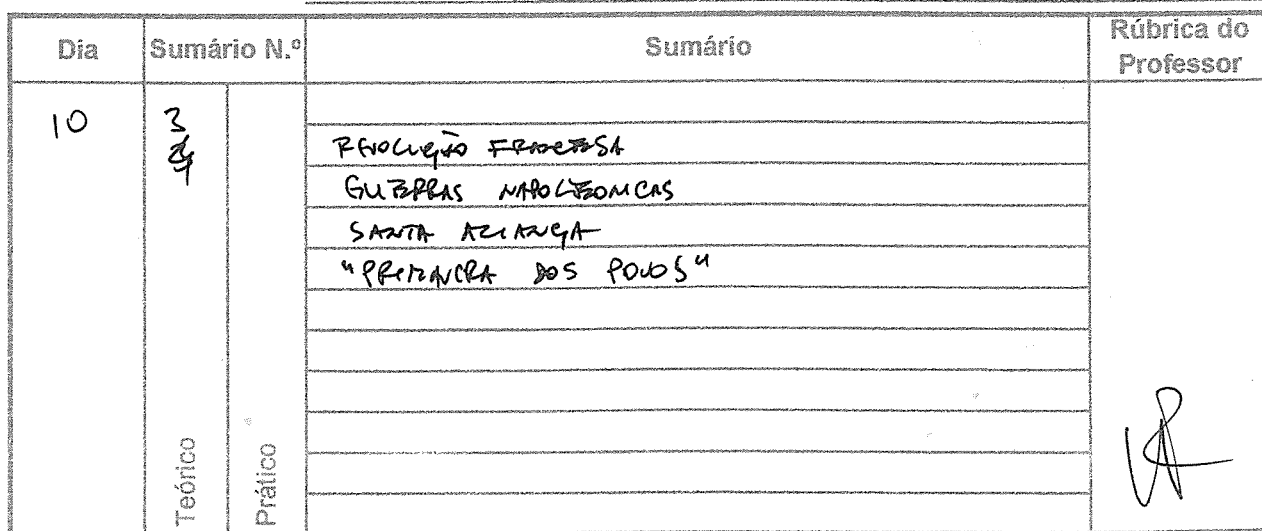 Dia Sumário N.º Sumário Rúbrica do Professor
10 3
4
REVOLUÇÃO FRANCESA
GUERRAS NAPOLEONICAS
SANTA ALIANÇA
"PRIMAVERA DOS POVOS"
Teórico Prático